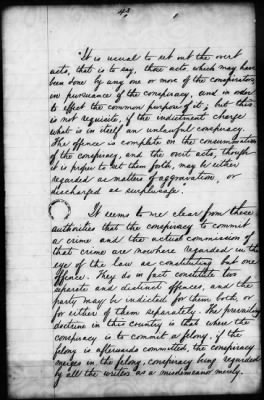 "It is usual to set out the overt
acts, that is to say, those acts which may have
been done by any one or more of the conspirators
in pursuance of the conspiracy, and in order
to effect the common purpose of it; but this
is not requisite, if the indictment charge
what is in itself an unlawful conspiracy.
The offence is complete on the consummation
of the conspiracy, and the overt acts, though
it is proper to set them forth, may be either
regarded as matters of aggravation, or
discharged as surplusage."
It seems to me clear from these
authorities that the conspiracy to commit
a crime and the actual commission of
that crime are nowhere regarded in the
eye of the law as constituting but one
offence. They do in fact constitute two
separate and distinct offences, and the
party may be indicted for them both, or
for either of them separately. The prevailing
doctrine in this country is that where the
conspiracy is to commit a felony, if the
felony is afterwards committed, the conspiracy
merges in the felony, conspiracy being regarded
by all the writers as a misdemeanor merely.